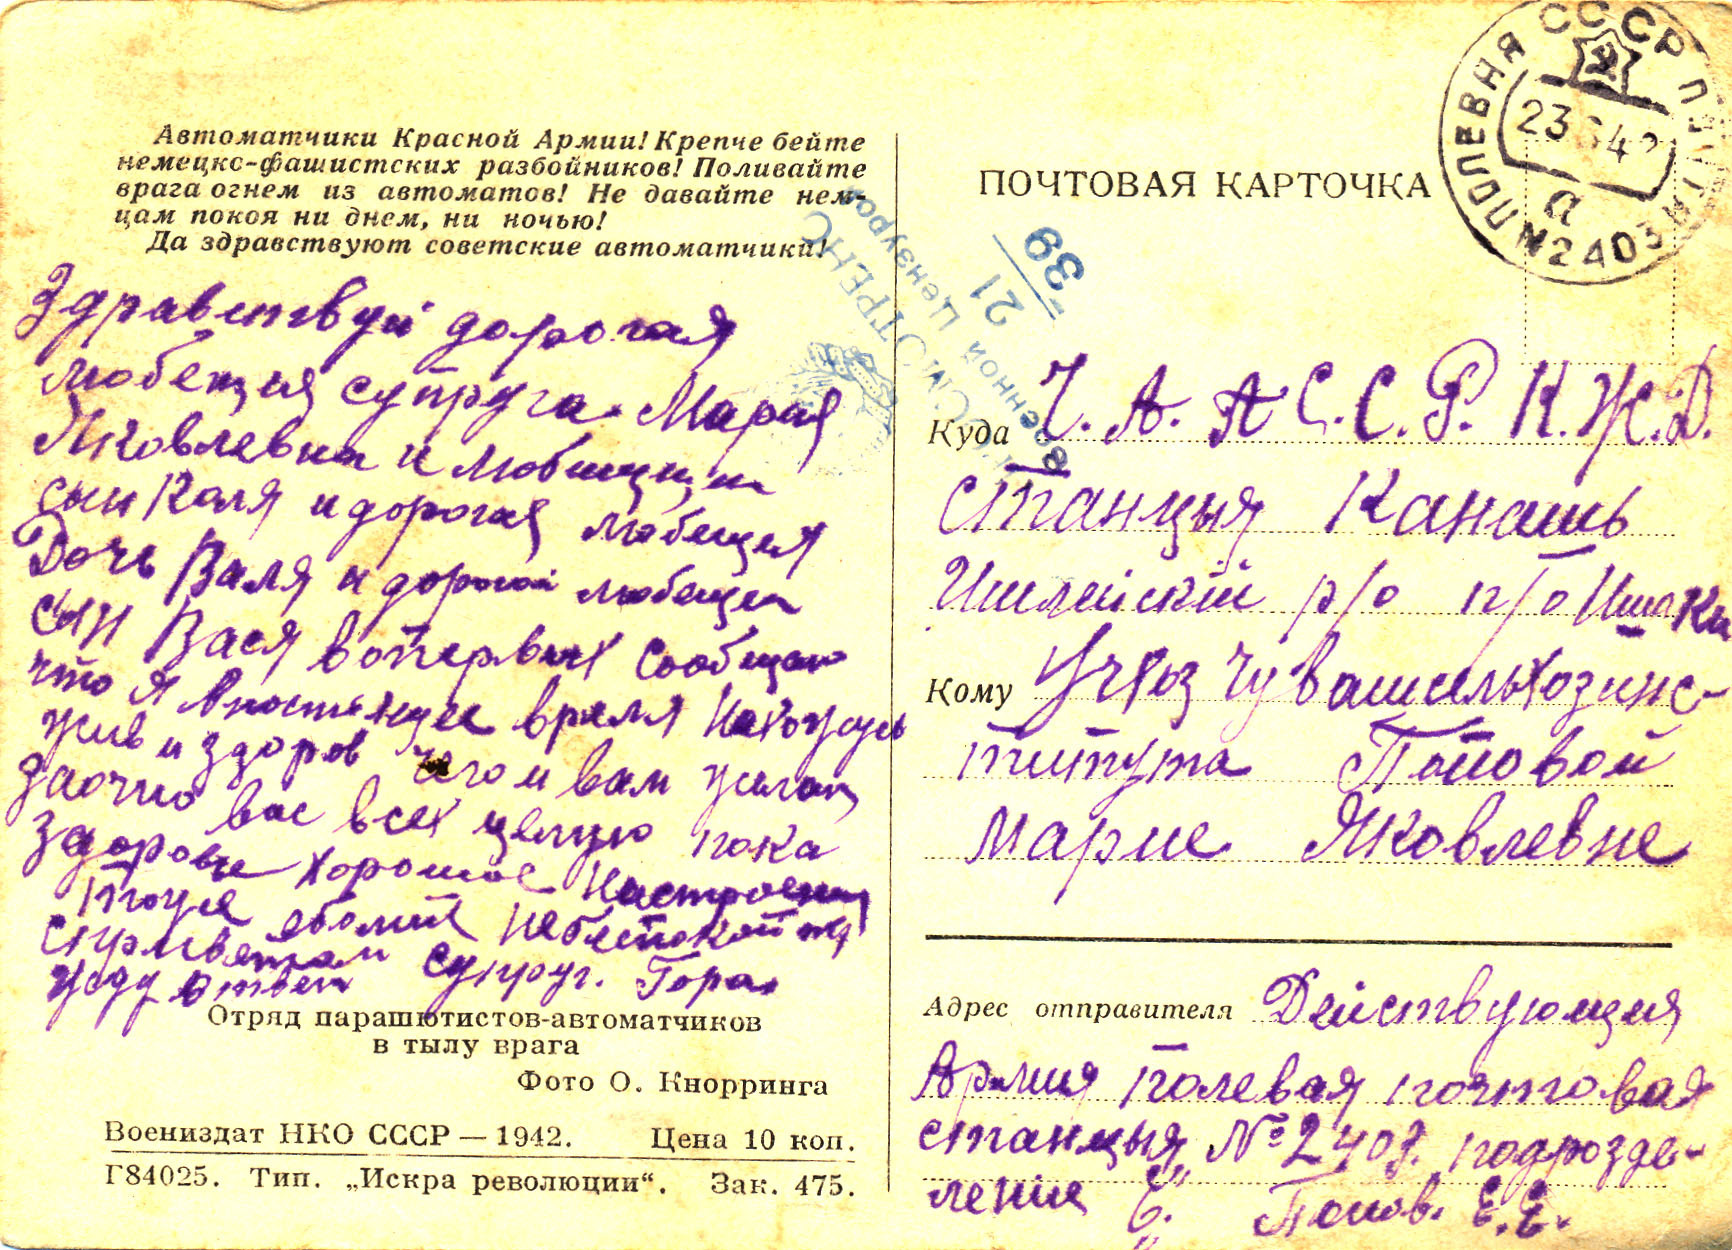 Автоматчики Красной Армии! Крепче бейте
немецко-фашистских разбойников! Поливайте
врага огнем из автоматов! Не давайте нем-
цам покоя ни днем, ни ночью!
Да здравствуют советские автоматчики!
Здравствуй дорогая
любещия супруга Мария
Яковлевна и любищи
сын Коля и дорогая любещея
Дочь Валя и дорогой любещи
сын Вася вопервых сообщаю
что я внастоящее время нахожусь
жив и здоров чего и вам желаю
заочно вас всех целую пока
здоровье хорошое настроения
тоже
супруг.
жду ответ
Отряд парашютистов-автоматчиков
в тылу врага
Фото О. Кнорринга
Воениздат НКО СССР — 1942. Цена 10 коп.
Г84025. Тип. „Искра революции“. Зак. 475.
ПОЧТОВАЯ КАРТОЧКА
СССР
ПОЛЕВАЯ ПОЧТА
23 42
а
N2403
ПРОСМОТРЕНО
Военной Цензурой
21
39
Куда Ч. А. А С. С. Р. К. Ж. Д.
станцыя Канашь
Ишлейский р/о п/о Ишаки
Кому Учхоз Чувашсельхозинс-
титута Поповой
Марие Яковлевне
Адрес отправителя Действующия
Армия полевая почтовая
станцыя № 2403. подрозде-
ление „Б.“ Попов. Е. Е.